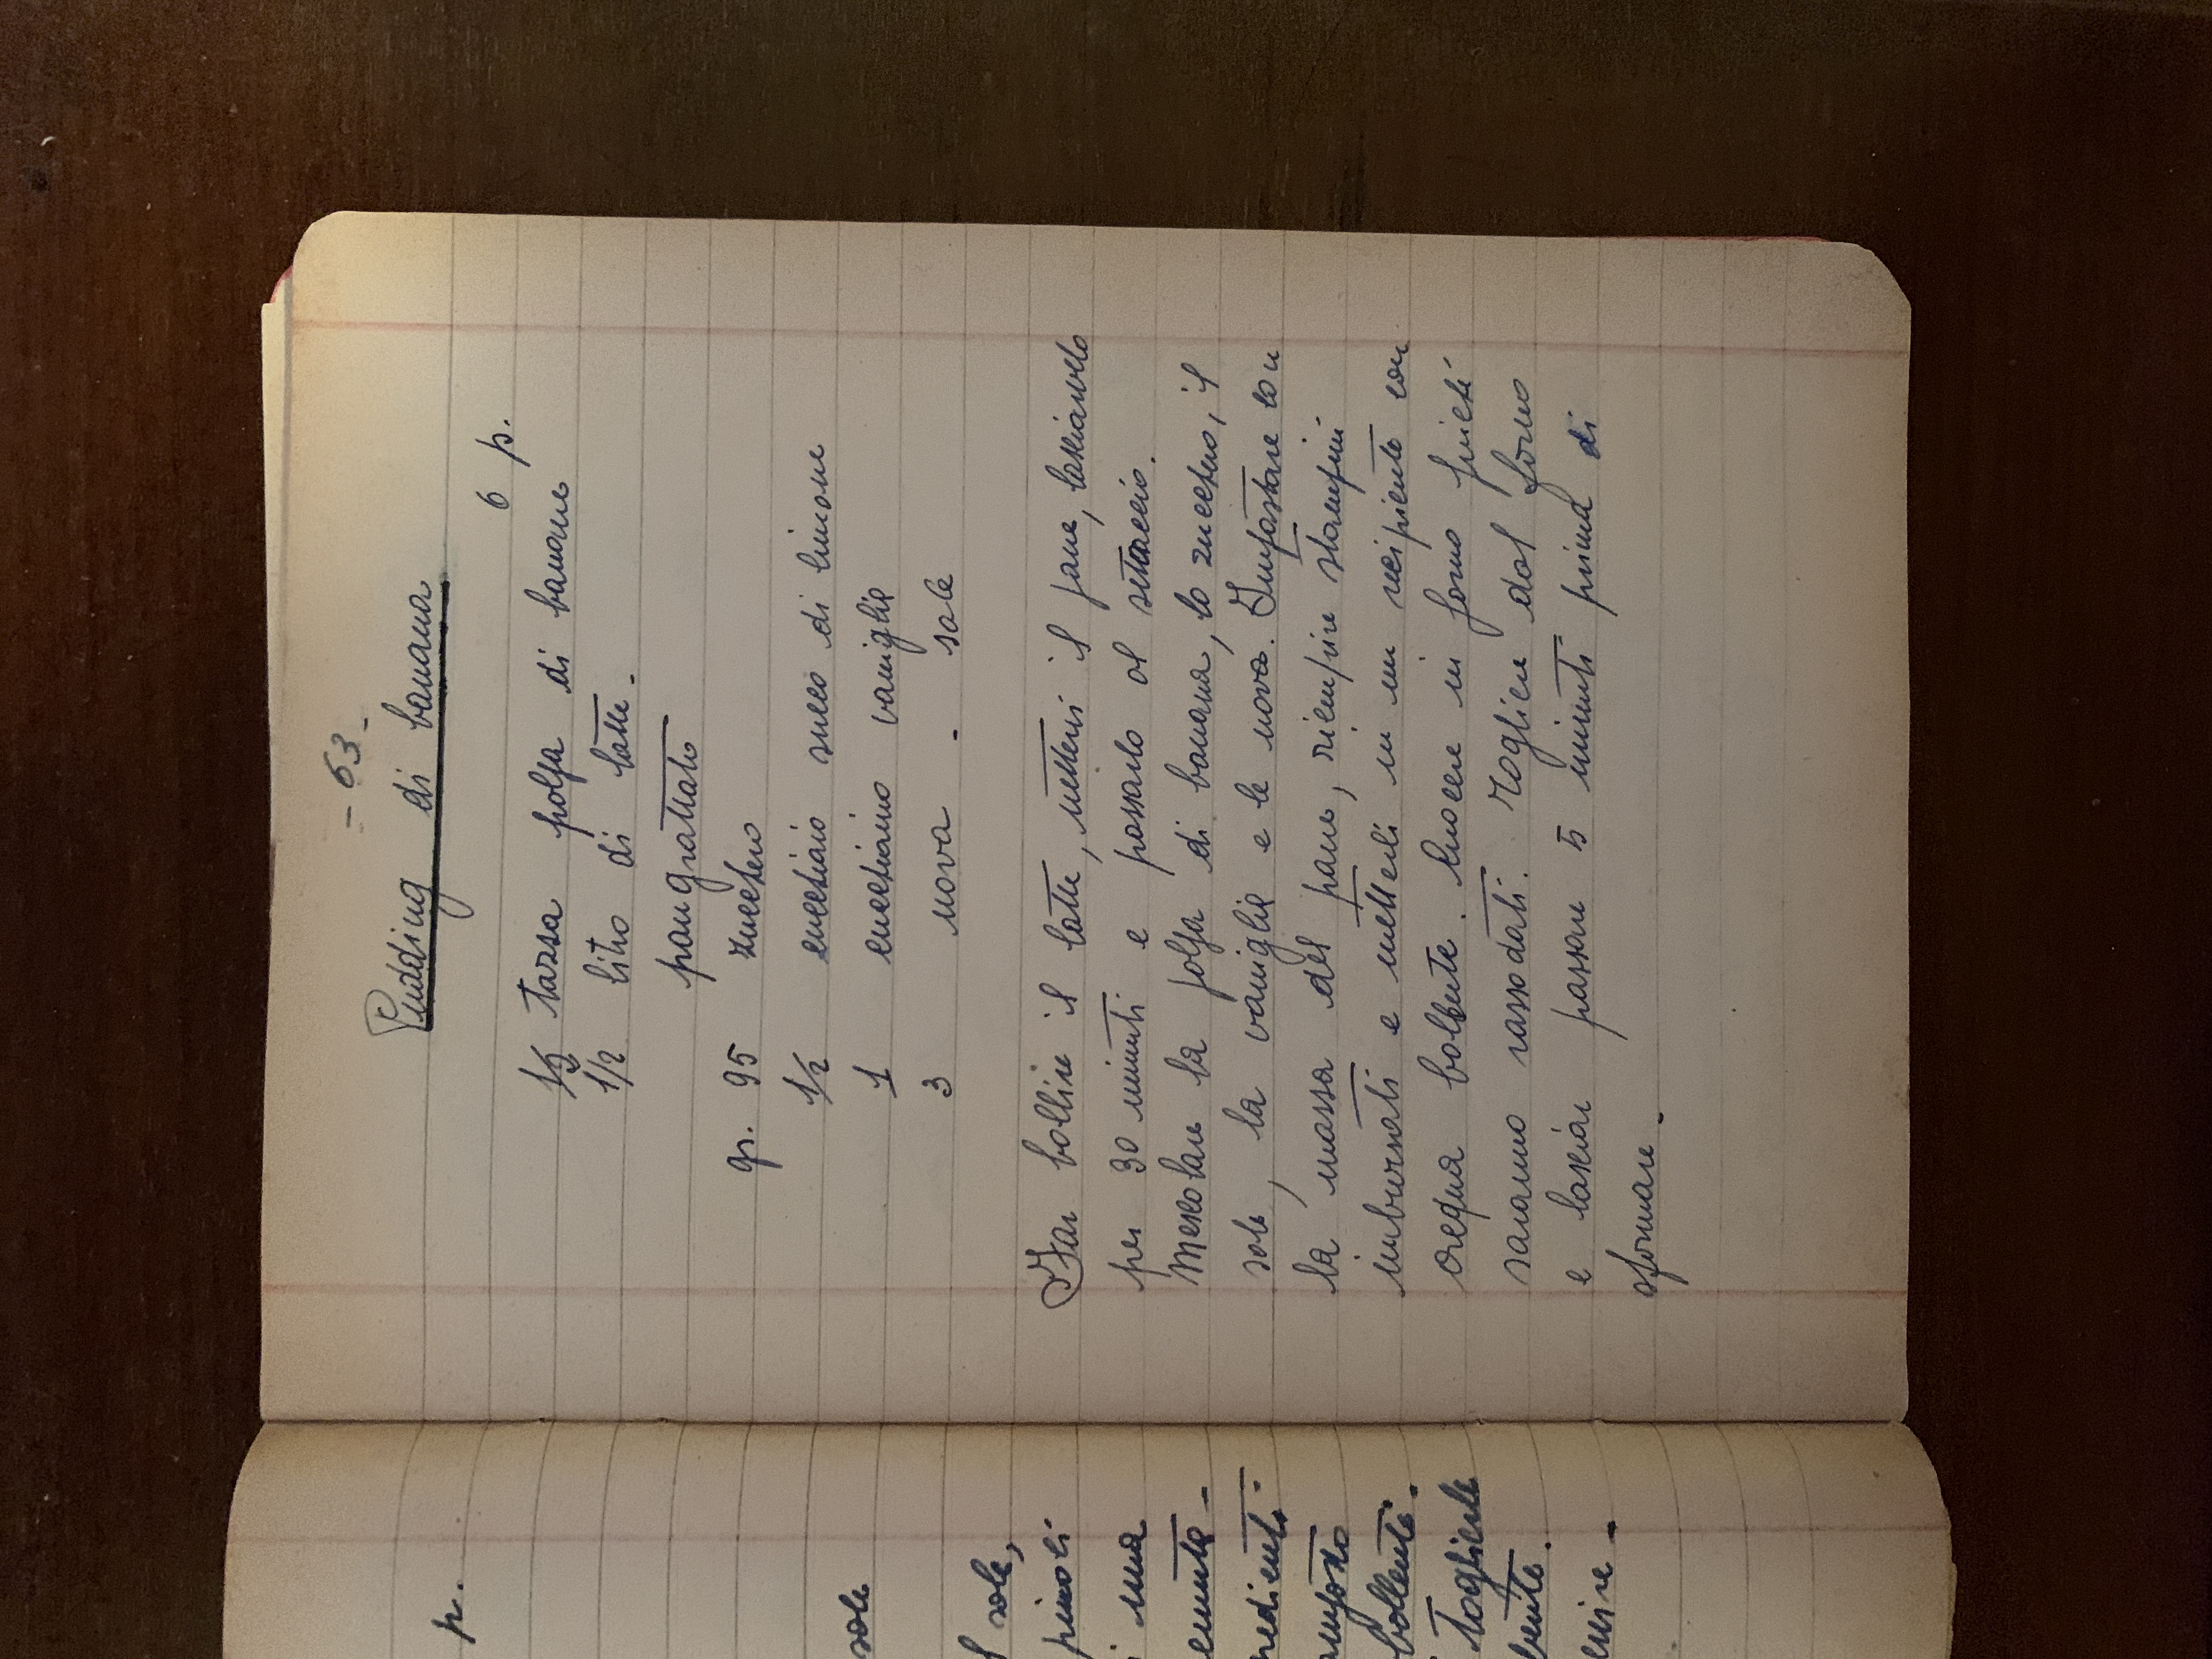 p.
sale
l sale,
pinoli
i una
enuta -
redienti
omposto
bollenti.
toglierle
lente.
ervire -
- 63 -
Pudding di banana
6 p.
1/2 tazza polpa di banane
1/2 litro di latte -
pan grattato
gr. 95 zucchero
1/2 cucchiaio succo di limone
1 cucchiaino vaniglia
3 uova - sale
Far bollire il latte, mettervi il pane, lasciarvelo
per 30 minuti e passarlo al setaccio.
Mescolare la polpa di banana, lo zucchero, il
sale, la vaniglia e le uova. Impastare con
la massa del pane, riempire stampini
imburrati e metterli in un recipiente con
acqua bollente. Cuocere in forno finché
saranno rassodati. Togliere dal forno
e lasciar passare 5 minuti prima di
sformare -